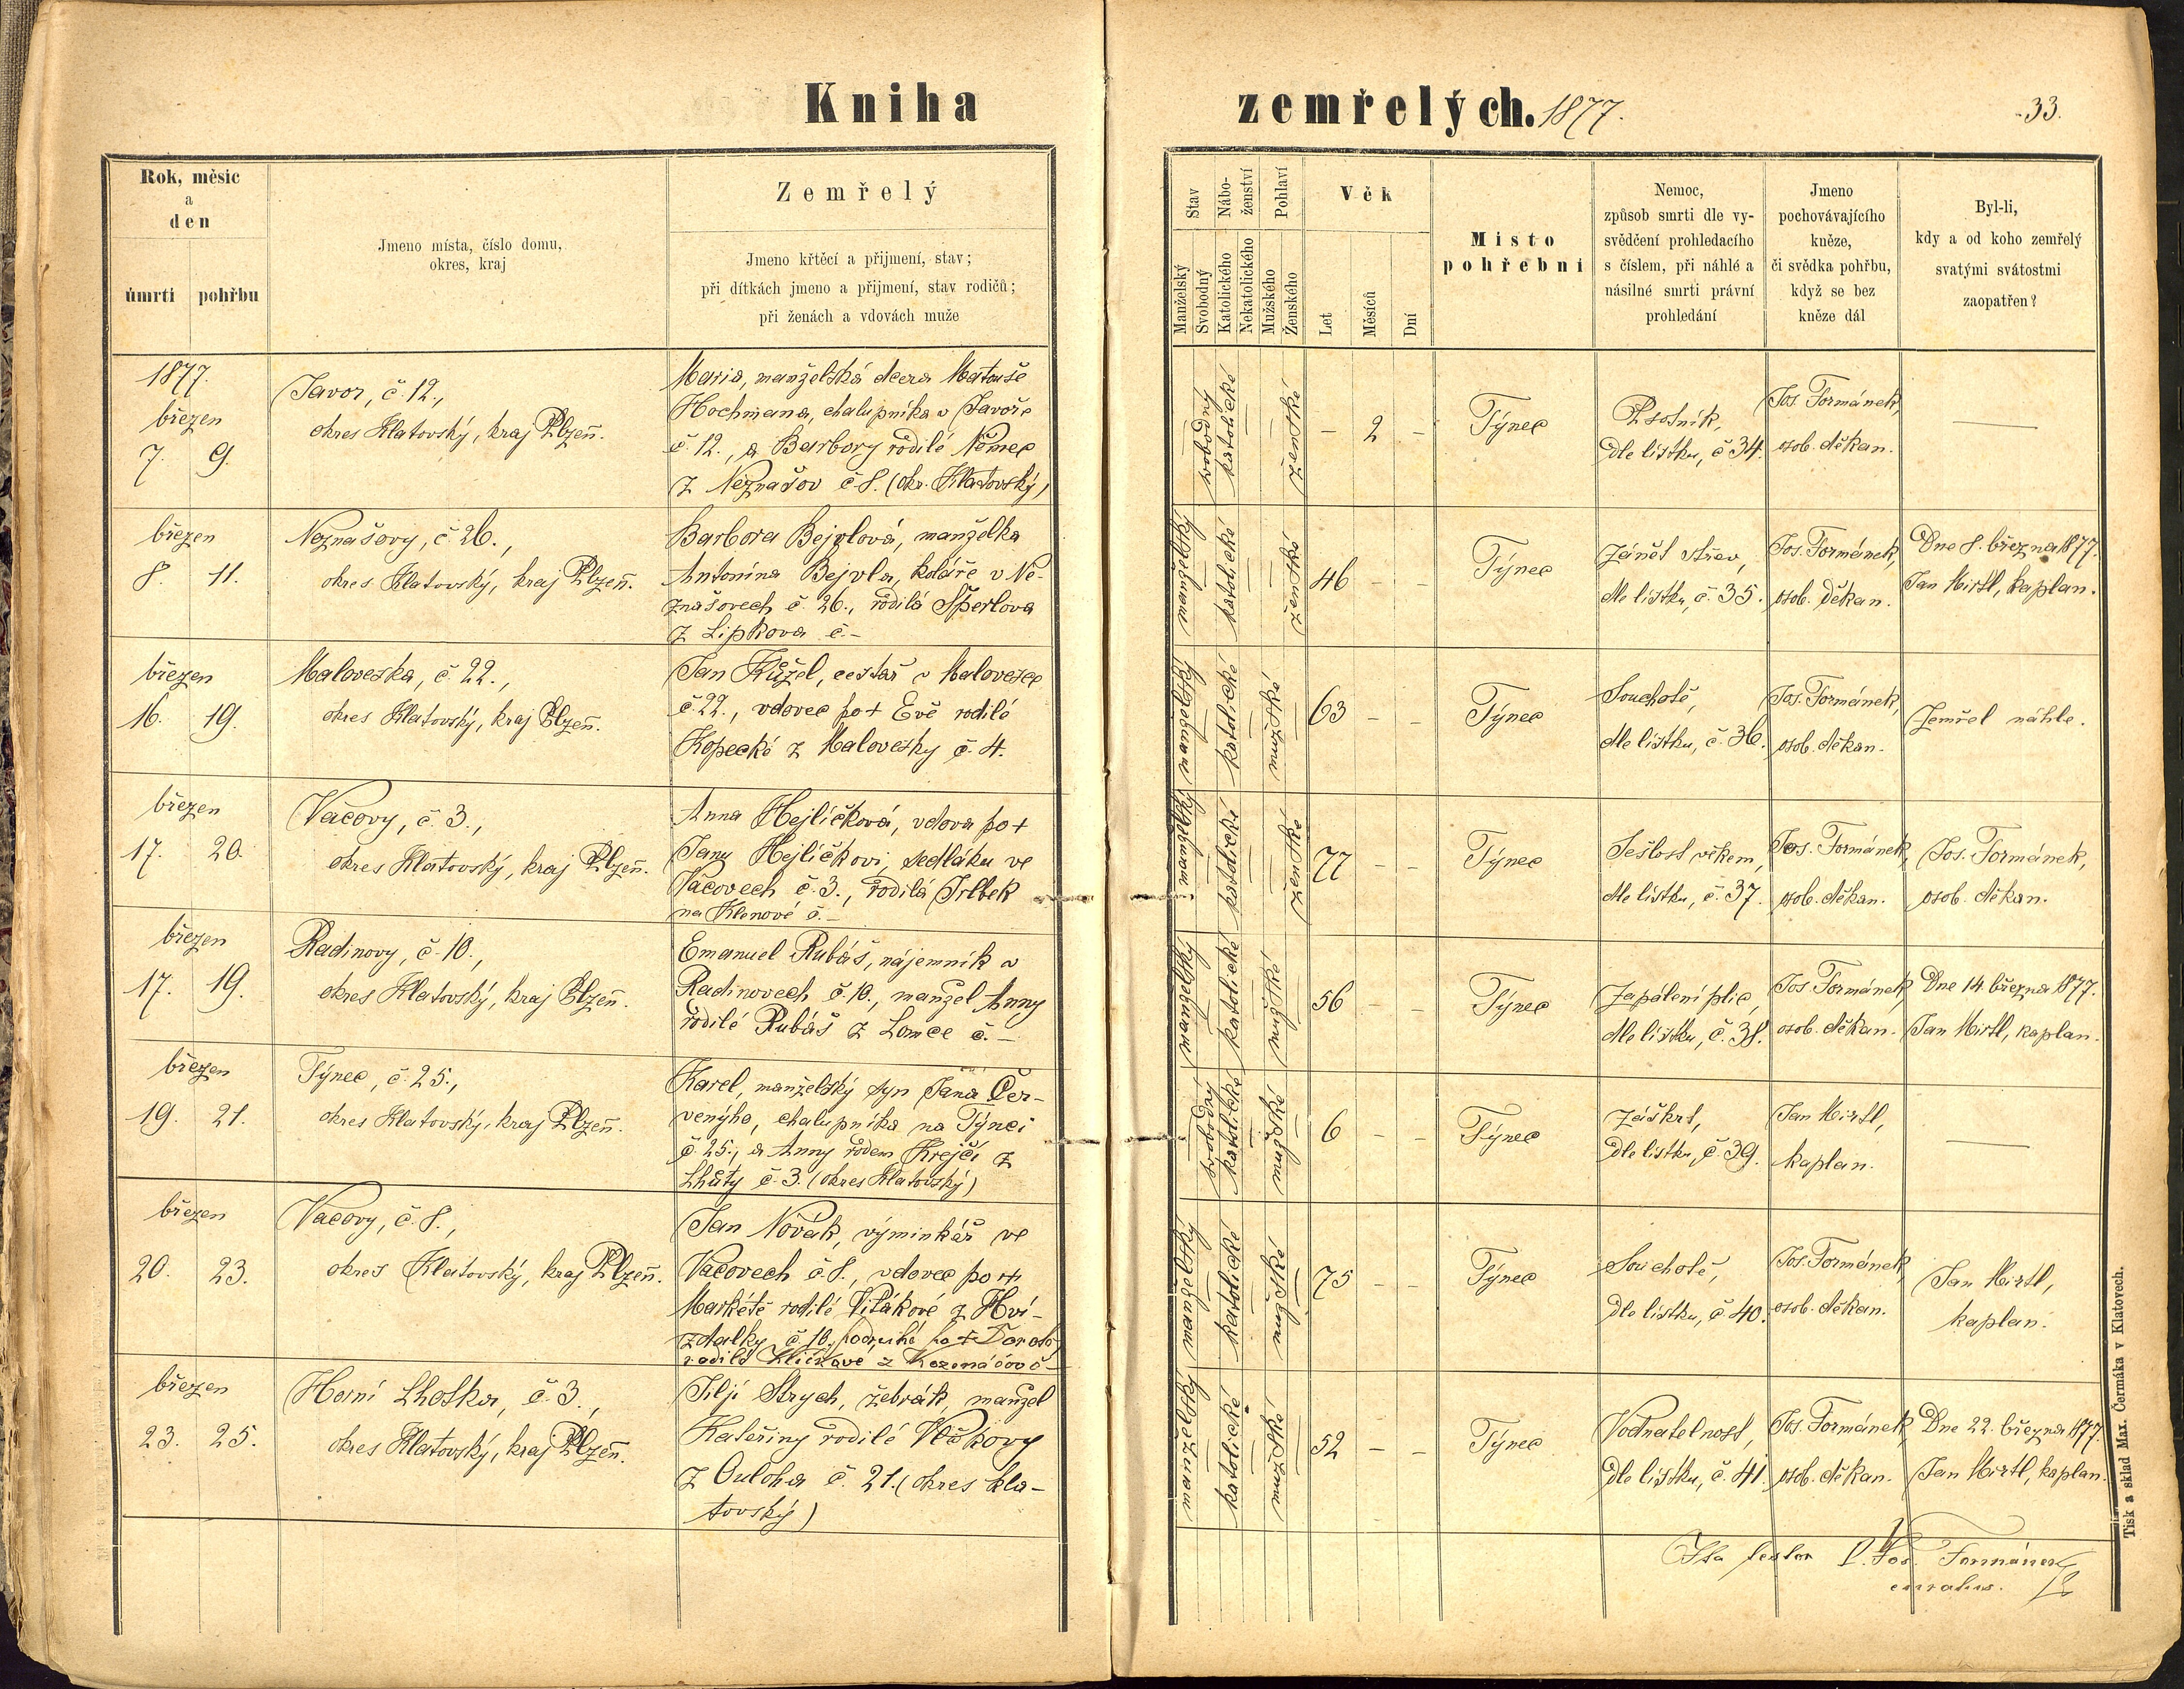 Kniha
zemřelých. 1877.
33.
Rok, měsíc
a
den
úmrtí
pohřbu
Jmeno místa, číslo domu,
okres, kraj
Zemřelý
Jmeno křtěcí a přijmení, stav;
při dítkách jmeno a přijmení, stav rodičů;
při ženách a vdovách muže
Stav
Manželský
Svobodný
Nábo-
ženství
Katolického
Nekatolického
Pohlaví
Mužského
Ženského
Věk
Let
Měsíců
Dní
Místo
pohřební
Nemoc,
způsob smrti dle vy-
svědčení prohledacího
s číslem, při náhlé a
násilné smrti právní
prohledání
Jmeno
pochovávajícího
kněze,
či svědka pohřbu,
když se bez
kněze dál
Byl-li,
kdy a od koho zemřelý
svatými svátostmi
zaopatřen?
1877.
březen
7. 9.
Javor, č. 12.,
okres Klatovský, kraj Plzeň.
Maria, manželská dcera Matouše
Hochmana, chalupníka v Javoře
č. 12., a Barbory rodilé Němec
z Neznašov č. 8. (okr. Klatovský)
svobodný
katolické
ženské
– 2 –
Týnec
Psotník,
dle lístku, č 34.
Jos. Formánek,
osob. děkan.
—
březen
8. 11.
Neznašovy, č. 26.,
okres Klatovský, kraj Plzeň.
Barbora Bejvlová, manželka
Antonína Bejvla, koláře v Ne-
znašovech č. 26., rodilá Šperlova
z Lipkova č. –
manželský
katolické
ženské
46 – –
Týnec
Zánět střev,
dle lístku, č. 35.
Jos. Formánek,
osob. děkan.
Dne 8. března 1877.
Jan Hirtl, kaplan.
březen
16. 19.
Maloveska, č. 22.,
okres Klatovský, kraj Plzeň.
Jan Kůžel, cestář v Malovesce
č. 22., vdovec po + Evě rodilé
Kopecké z Malovesky č. 4.
manželský
katolické
mužské
63 – –
Týnec
Souchotě,
dle lístku, č. 36.
Jos. Formánek,
osob. děkan.
Zemřel náhle.
březen
17. 20.
Vačovy, č. 3.,
okres Klatovský, kraj Plzeň.
Anna Hejlíčková, vdova po +
Janu Hejlíčkovi, sedláku ve
Vačovech č. 3., rodilá Irlbek
na Klenové č. –
manželský
katolické
ženské
77 – –
Týnec
Sešlost věkem,
dle lístku, č. 37.
Jos. Formánek,
osob. děkan.
Jos. Formánek,
osob. děkan.
březen
17. 19.
Radinovy, č. 10.,
okres Klatovský, kraj Plzeň.
Emanuel Rubáš, nájemník v
Radinovech č. 10., manžel Anny
rodilé Rubáš z Lomce č. –
manželský
katolické
mužské
56 – –
Týnec
Zapálení plic,
dle lístku, č. 38.
Jos. Formánek,
osob. děkan.
Dne 14. března 1877.
Jan Hirtl, kaplan.
březen
19. 21.
Týnec, č. 25.,
okres Klatovský, kraj Plzeň.
Karel, manželský syn Jana Čer-
venýho, chalupníka na Týnci
č. 25., a Anny rodem Krejčí z
Lhůty č. 3. (okres Klatovský)
svobodný
katolické
mužské
6 – –
Týnec
Záškrt,
dle lístku, č. 39.
Jan Hirtl,
kaplan.
—
březen
20. 23.
Vacovy, č. 8.,
okres Klatovský, kraj Plzeň.
Jan Novák, výminkář ve
Vacovech č. 8., vdovec po +
Markétě rodilé Vítákové z Hví-
zdalky č. 10., podruhé po +
manželský
katolické
mužské
75 – –
Týnec
Souchotě,
dle lístku, č 40.
Jos. Formánek,
osob. děkan.
Jan Hirtl,
kaplan.
březen
23. 25.
Horní Lhotka, č. 3.,
okres Klatovský, kraj Plzeň.
Jiljí Strych, žebrák, manžel
Kateřiny rodilé Vlčkovy
z Ouloha č. 21. (okres kla-
tovský)
manželský
katolické
mužské
52 – –
Týnec
Vodnatelnost,
dle lístku, č. 41.
Jos. Formánek,
osob. děkan.
Dne 22. března 1877.
Jan Hirtl, kaplan.
Ita testor P. Jos. Formánek
curatus.
Tisk a sklad Max. Čermáka v Klatovech.